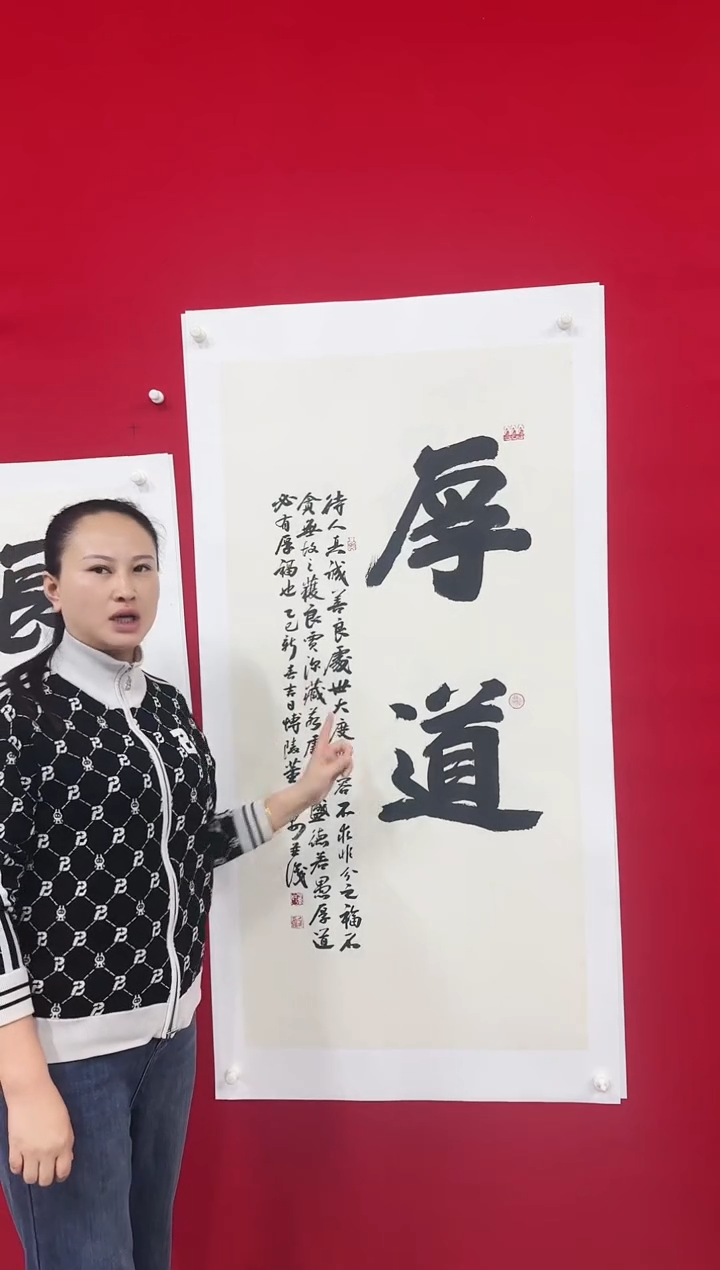 厚道
待人真誠善良處世大度容不求非分之福不
貪無故之獲良賈深藏若盛德若愚厚道
必有厚福也 乙巳新春吉日博陵董